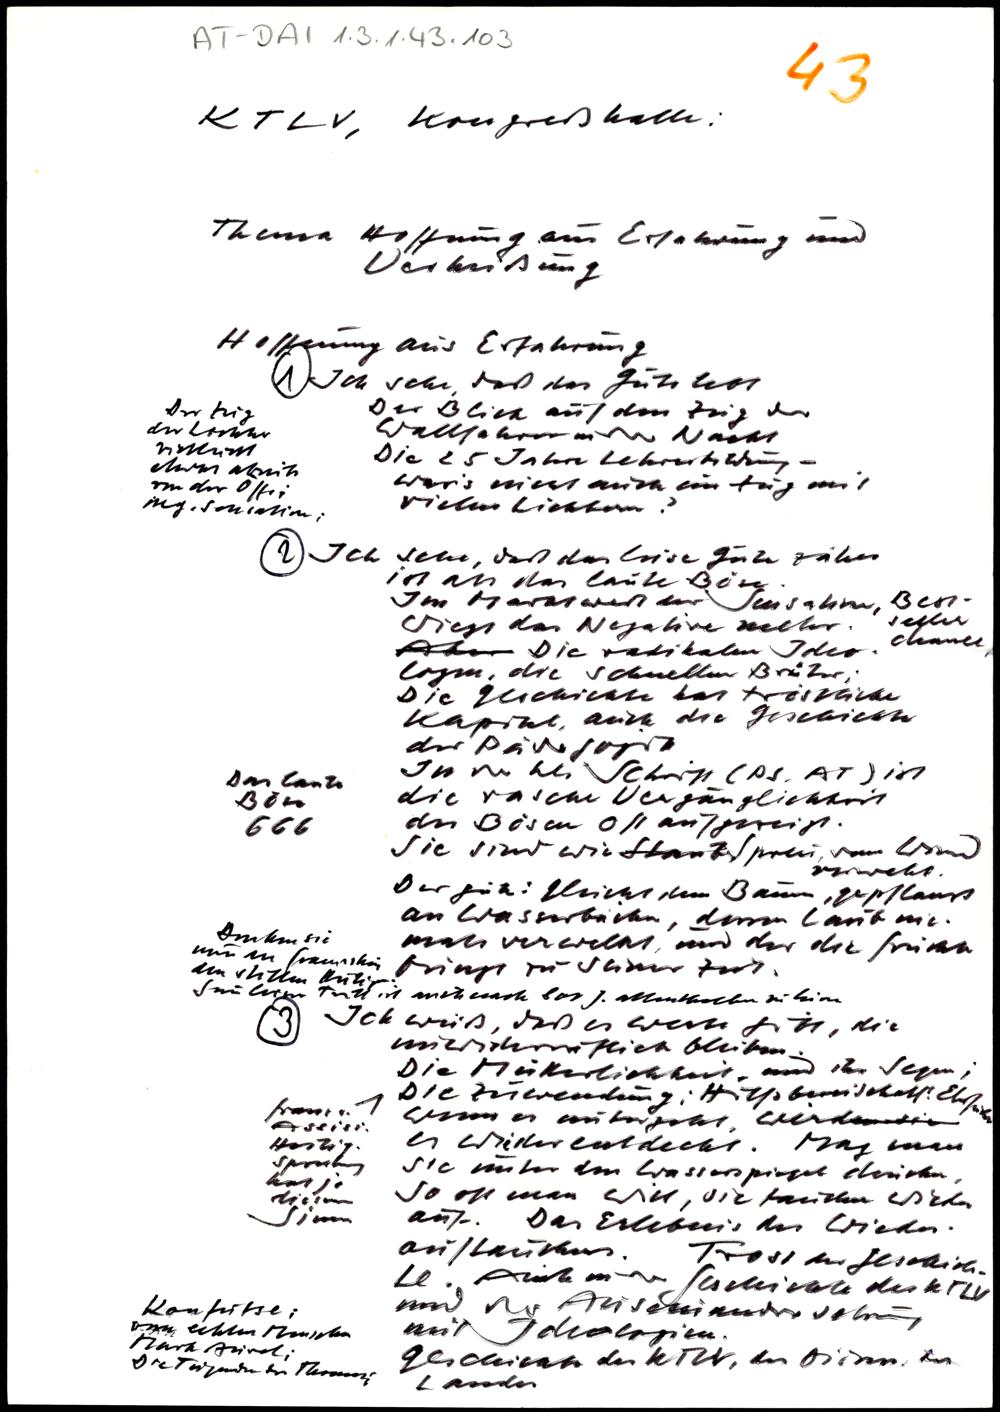 AT-DAI 1.3.1.43.103
43
KTLV, Kongreßhalle:
Thema Hoffnung aus Erfahrung und
Verheißung
Hoffnung aus Erfahrung
1 Ich sehe, daß das Gute lebt
Der Blick auf den Zug der
Wallfahrer in der Nacht
Die 25 Jahre Lehrerbildung -
war's nicht auch ein Zug mit
vielen Lichtern?
Der Zug
der Lichter
vielleicht
etwas abseits
von der Offi
sensation;
2 Ich sehe, daß das leise Gute zäher
ist als das laute Böse.
Im Marktwert der Sensation, Best-
seller
chance,
wiegt das Negative mehr.
Aber Die radikalen Ideo-
logen, die schnellen Brüter;
Die Geschichte hat tröstliche
Kapitel, auch die Geschichte
der Pädagogik
In der hl. Schrift (Ps. AT) ist
die rasche Vergänglichkeit
des Bösen oft aufgezeigt.
Das laute
Böse
666
Sie sind wie Staub Spreu, vom Wind
verweht.
Der gute: gleicht dem Baum, gepflanzt
an Wasserbächen, deren Laub nie-
mals verwelkt, und der die Früchte
bringt zu seiner Zeit.
Denken Sie
nur an Franziskus
den stillen Heilig.
Sein leiser Tritt ist auch nach 800 J. allenthalben zu hören
3 Ich weiß, daß es Werte gibt, die
unwiderruflich bleiben.
Die Mütterlichkeit, und ihr Segen;
Die Zuwendung; Hilfsbereitschaft: Ehrfurcht
wenn es untergeht, werden sie
es wieder entdeckt. Mag man
sie unter den Wasserspiegel drücken,
so oft man will, sie tauchen wieder
auf. Das Erlebnis des Wieder-
auftauchens. Trost der Geschich-
te. Auch in der Geschichte des KTLV
und der Auseinandersetzung
mit Ideologien.
Geschichte des KTLV, der Diözese, des
Landes
Franz v.
Assisi.
Heilig-
sprechung
hat ja
diesen
Sinn
Konfutse;
vom echten Menschen
Mark Aurel;
Die Tugenden des Thomas;